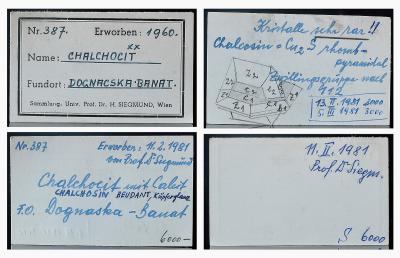 Nr. 387. Erworben: 1960.
xx
Name: CHALCHOCIT
Fundort: DOGNACSKA-BANAT.
Sammlung: Univ. Prof. Dr. H. SIEGMUND, Wien
Kristalle sehr rar!!
Chalcosin = Cu2S rhomb-
pyramidal
Zwillingsgruppe nach
112
13. II. 1981 4000
5. III 1981 3000
Nr. 387 Erworben: 11.2.1981
von Prof. Dr Siegmund
Chalchocit mit Calcit
CHALCHOSIN BEUDANT, Kupferglanz
F.O. Dognaska-Banat
6000-
11. II. 1981
Prof. Dr Siegm.
S 6000